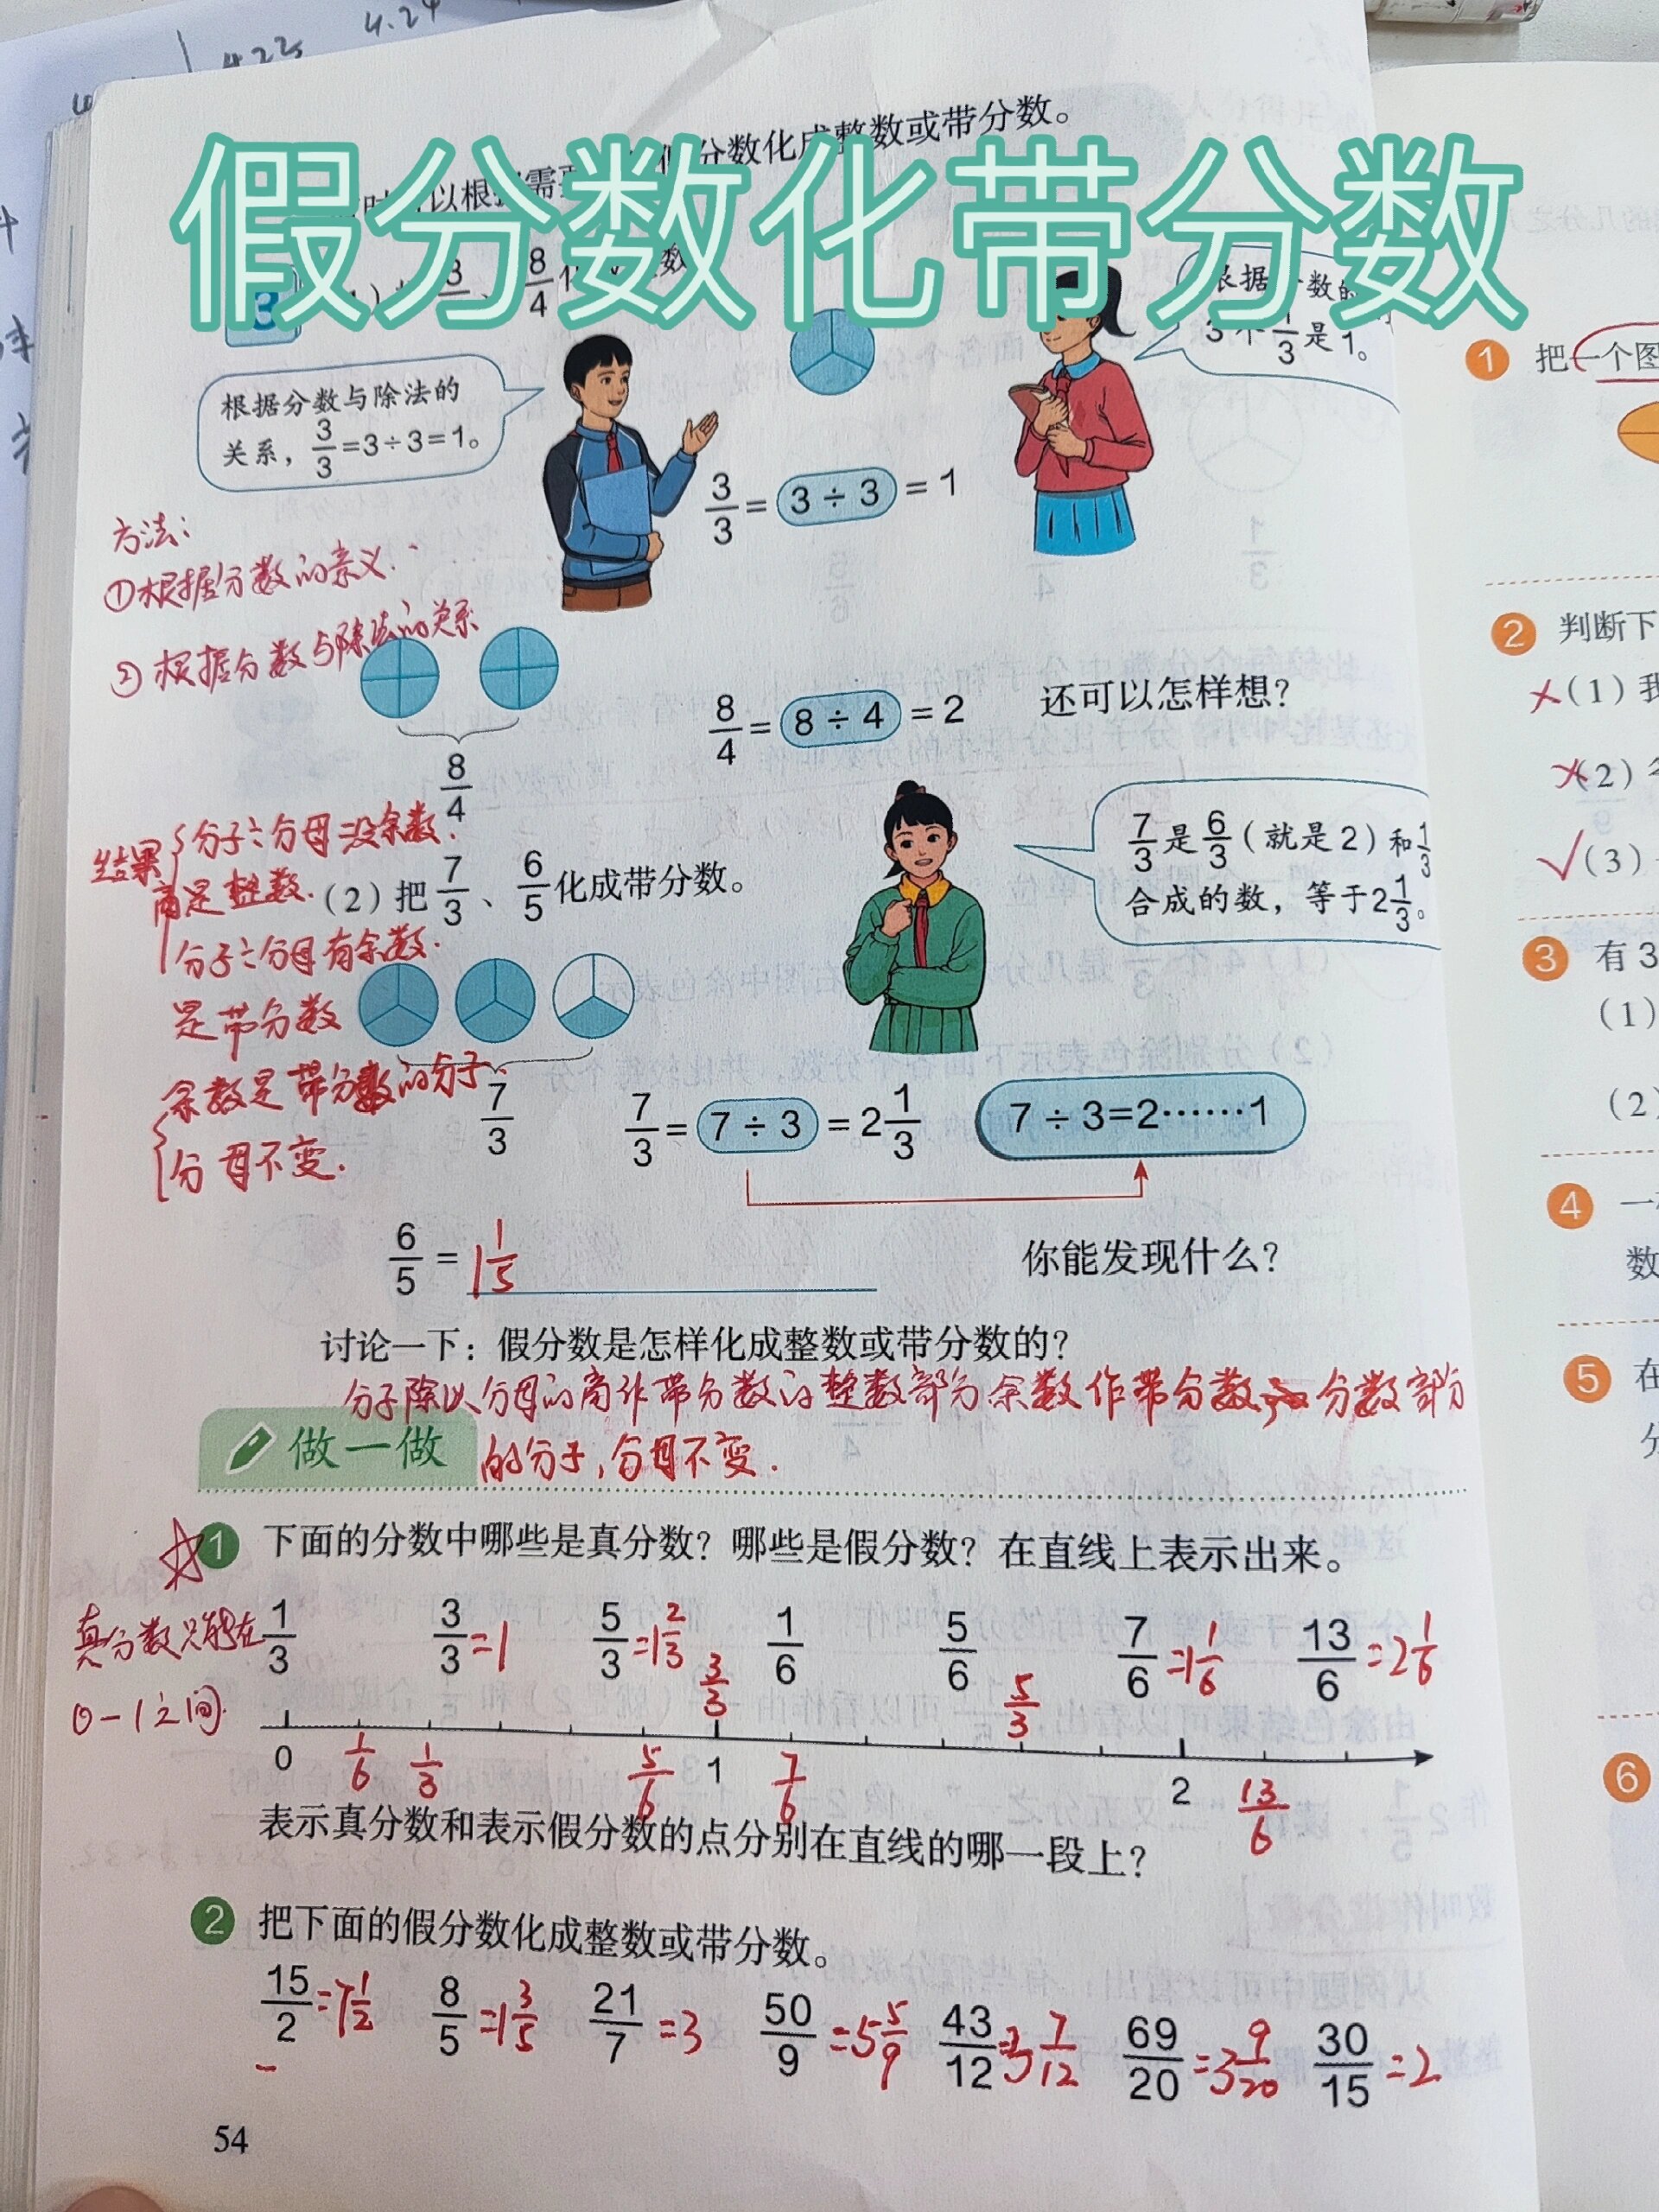 4.23
4.24
假分数化带分数
分数化成整数或带分数。
3
8/4
根据分数与除法的
关系，3/3=3÷3=1。
是1。
3/3 = 3÷3 = 1
方法：
①根据分数的意义.
②根据分数与除法的关系
8/4
8/4 = 8÷4 = 2
还可以怎样想？
结果
分子÷分母=没余数.
商是整数.
分子÷分母有余数.
是带分数
余数是带分数的分子
分母不变.
(2) 把 7/3、6/5 化成带分数。
7/3是6/3（就是2）和1/3
合成的数，等于2 1/3。
7/3
7/3 = 7÷3 = 2 1/3
7÷3=2……1
6/5 = 1 1/5
你能发现什么？
讨论一下：假分数是怎样化成整数或带分数的？
分子除以分母的商作带分数的整数部分余数作带分数的分数部分
的分子，分母不变.
做一做
1 下面的分数中哪些是真分数？哪些是假分数？在直线上表示出来。
真分数只能在
0-1之间.
1/3 3/3=1 5/3=1 2/3 1/6 5/6 7/6=1 1/6 13/6=2 1/6
3/3 5/3
0 1/6 1/3 5/6 1 7/6 2 13/6
表示真分数和表示假分数的点分别在直线的哪一段上？
2 把下面的假分数化成整数或带分数。
15/2=7 1/2 8/5=1 3/5 21/7=3 50/9=5 5/9 43/12=3 7/12 69/20=3 9/20 30/15=2
54
1 把一个图
2 判断下
×(1) 我
×(2)
√(3)
3 有3
(1)
(2)
4 一
数
5 在
分
6